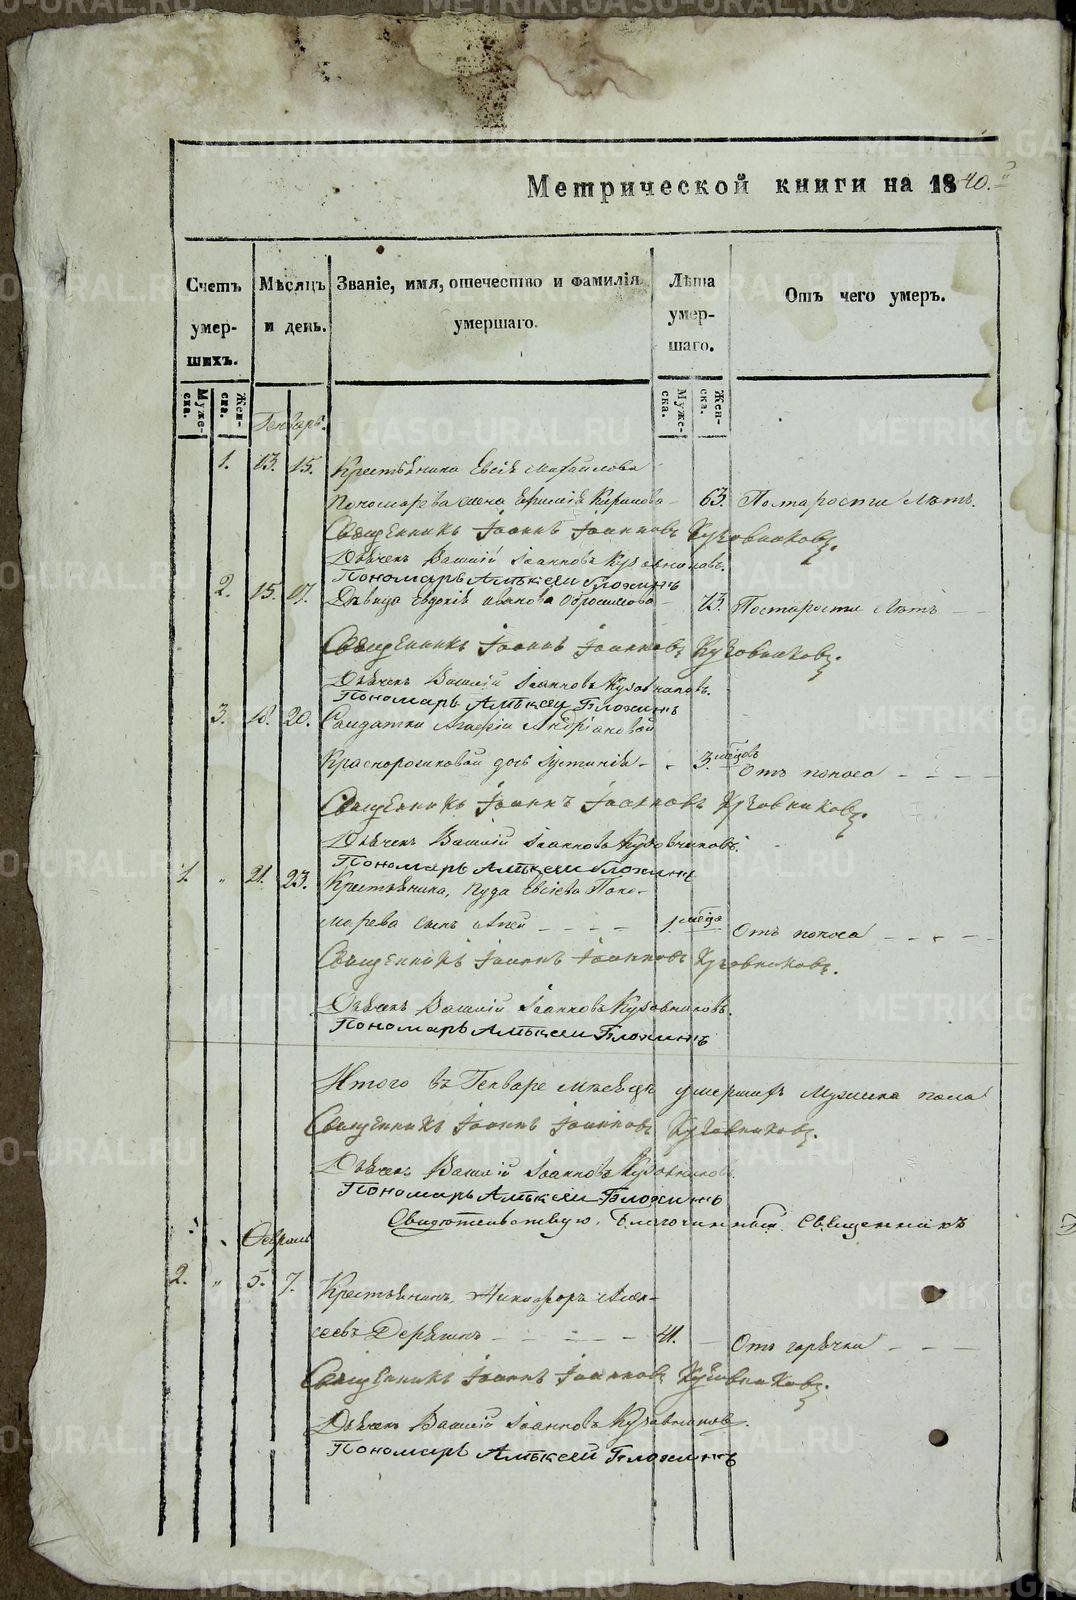 Метрической книги на 1840.
Счетъ умер-
шихъ.
Муже-
ска.
Жен-
ска.
Мѣсяцъ
и день.
Званіе, имя, отечество и фамилія
умершаго.
Лѣта
умер-
шаго.
Муже-
ска.
Жен-
ска.
Отъ чего умеръ.
Генварь.
1. 13. 15. Крестьянина Евсѣя Михайлова
Пономарева жена Кирилова 63. По старости лѣтъ.
Священникъ Іоаннъ Іоанновъ Кузовниковъ.
Дьячекъ Василій Іоанновъ Кузовниковъ.
Пономарь Алѣксей Бложинъ
2. 15. 17. Дѣвица Евдокія Иванова 73. По старости лѣтъ
Священникъ Іоаннъ Іоанновъ Кузовниковъ.
Дьячекъ Василій Іоанновъ Кузовниковъ.
Пономарь Алѣксей Бложинъ
3. 18. 20. Солдатки Агафіи Андріановой
дочь Іустинія 3. мѣсяцовъ Отъ поноса
Священникъ Іоаннъ Іоанновъ Кузовниковъ.
Дьячекъ Василій Іоанновъ Кузовниковъ.
Пономарь Алѣксей Бложинъ
1. " 21. 23. Крестьянина, Іуда Евсіева Поно-
марева сынъ 1 мѣсяца Отъ поноса
Священникъ Іоаннъ Іоанновъ Кузовниковъ.
Дьячекъ Василій Іоанновъ Кузовниковъ.
Пономарь Алѣксей Бложинъ
Итого въ Генваре мѣсяцѣ умершихъ мужеска пола
Священникъ Іоаннъ Іоанновъ Кузовниковъ.
Дьячекъ Василій Іоанновъ Кузовниковъ.
Пономарь Алѣксей Бложинъ
Свидѣтельствую, Благочинный Священникъ
Февраль
2. " 5. 7. Крестьянинъ, Никифоръ Алек-
сеевъ 41. Отъ горячки
Священникъ Іоаннъ Іоанновъ Кузовниковъ.
Дьячекъ Василій Іоанновъ Кузовниковъ.
Пономарь Алѣксей Бложинъ
METRIKI.GASO-URAL.RU